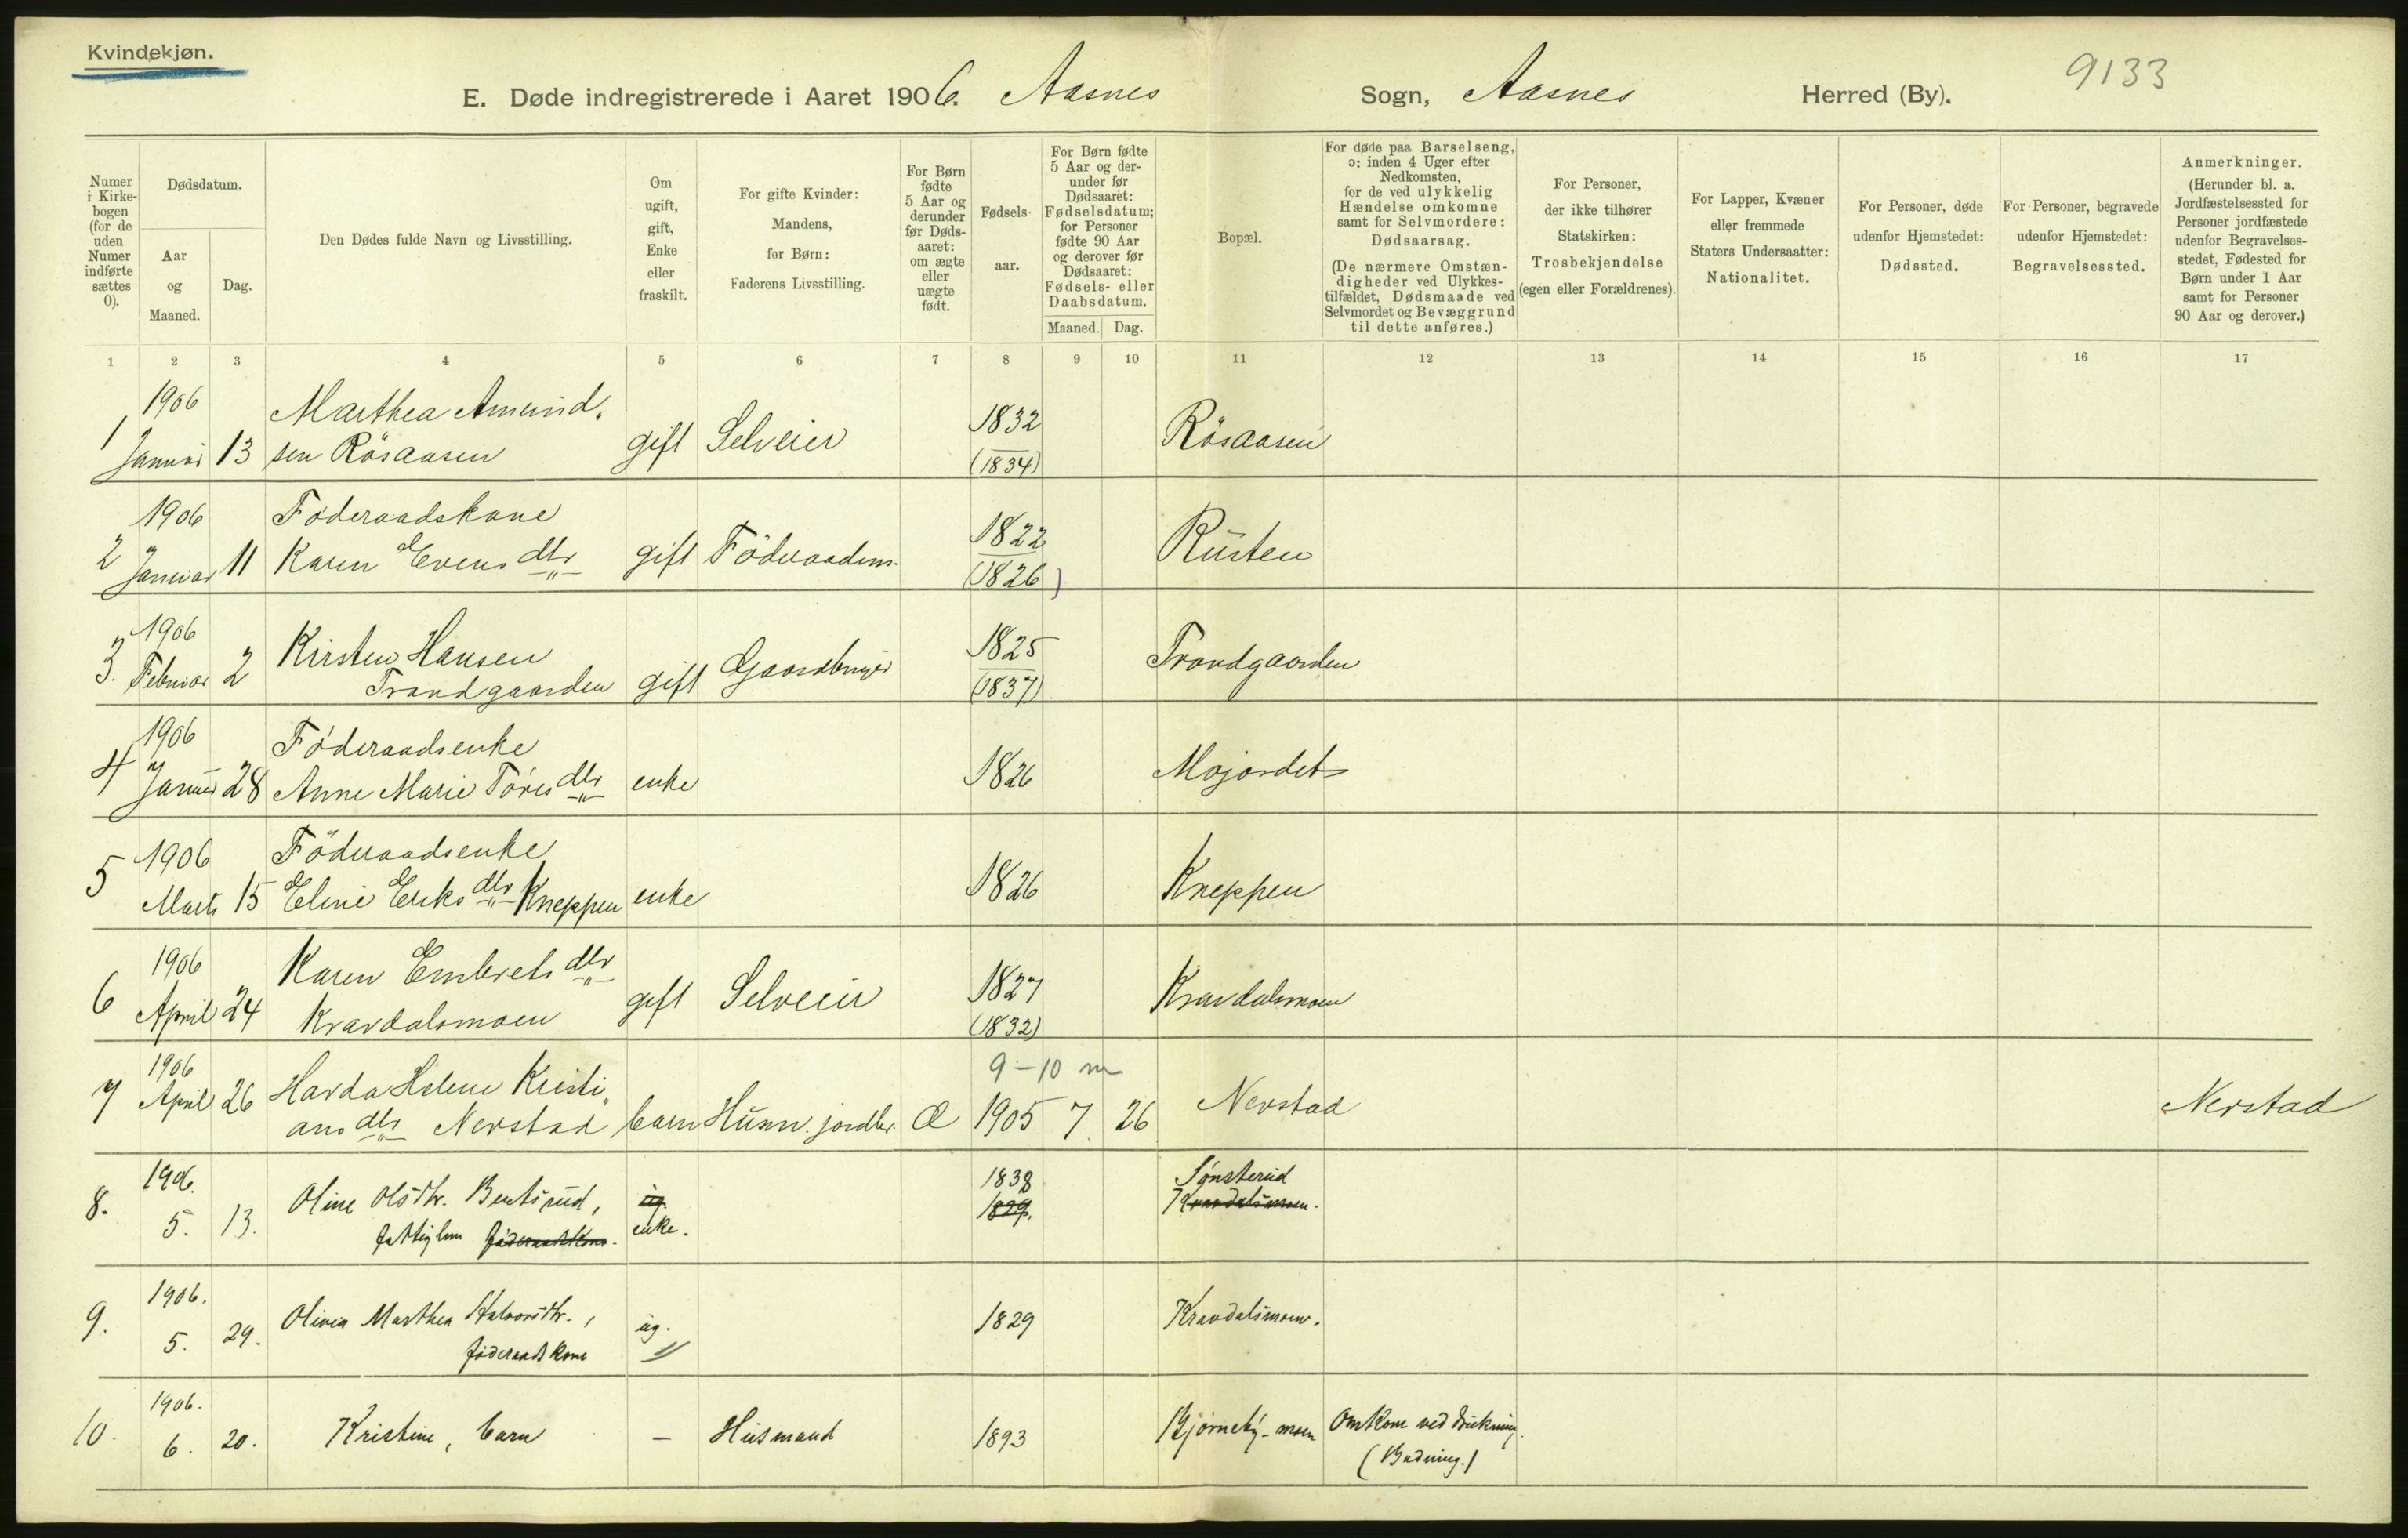 Kvindekjøn.
9133
E. Døde indregistrerede i Aaret 1906. Aasnes Sogn, Aasnes Herred (By).
Numer i Kirkebogen (for de uden Numer indførte sættes 0).
Dødsdatum.
Aar og Maaned.
Dag.
Den Dødes fulde Navn og Livsstilling.
Om ugift, gift, Enke eller fraskilt.
For gifte Kvinder: Mandens, for Børn: Faderens Livsstilling.
For Børn fødte 5 Aar og derunder før Dødsaaret: om ægte eller uægte født.
Fødselsaar.
For Børn fødte 5 Aar og derunder før Dødsaaret: Fødselsdatum; for Personer fødte 90 Aar og derover før Dødsaaret: Fødsels- eller Daabsdatum.
Maaned. Dag.
Bopæl.
For døde paa Barselseng, ɔ: inden 4 Uger efter Nedkomsten, for de ved ulykkelig Hændelse omkomne samt for Selvmordere: Dødsaarsag.
(De nærmere Omstændigheder ved Ulykkestilfældet, Dødsmaade ved Selvmordet og Bevæggrund til dette anføres.)
For Personer, der ikke tilhører Statskirken: Trosbekjendelse (egen eller Forældrenes).
For Lapper, Kvæner eller fremmede Staters Undersaatter: Nationalitet.
For Personer, døde udenfor Hjemstedet: Dødssted.
For Personer, begravede udenfor Hjemstedet: Begravelsessted.
Anmerkninger.
(Herunder bl. a. Jordfæstelsessted for Personer jordfæstede udenfor Begravelsesstedet, Fødested for Børn under 1 Aar samt for Personer 90 Aar og derover.)
1 2 3 4 5 6 7 8 9 10 11 12 13 14 15 16 17
1906 Marthea Amund- 1832
1 Januar 13 sen Rösaasen gift Selveier (1834) Rösaasen
1906 Föderaadskone 1822
2 Januar 11 Karen Evensdtr gift Föderaadsm. (1826) Rusten
1906 Kirsten Hansen 1825
3. Februar 2 Trondgaarden gift Gaardbruger (1837) Trondgaarden
1906 Föderaadsenke
4 Januar 28 Anne Marie Töresdtr enke 1826 Mojordet
1906 Föderaadsenke
5 Marts 15 Eline Eriksdtr Kneppen enke 1826 Kneppen
1906 Karen Embretsdtr 1827
6 April 24 Kravdalsmoen gift Selveier (1832) Kravdalsmoen
1906 9-10 m
7 April 26 Harda Helene Kristi-
ansdtr Nerstad barn Husm. jordbr. Æ 1905 7 26 Nerstad Nerstad
1906. 1838 Sønsterud
8. 5. 13. Oline Olsdtr. Bentsrud, ug. 1829. Kravdalsmoen.
fattiglem føderaadskone. enke.
1906.
9. 5. 29. Olivia Marthea Halvorsdtr., ug. 1829 Kravdalsmoen.
føderaadskone
1906.
10. 6. 20. Kristine, barn — Husmand 1893 Bjørneby-moen Omkom ved drukning.
(Badning.)